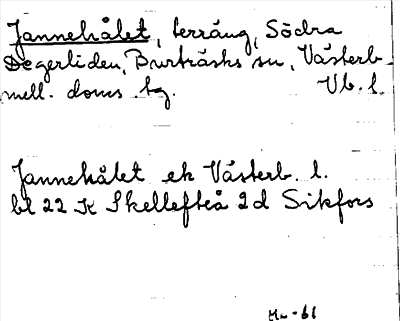 Jannehålet, terräng, Södra
Degerliden, Burträsks sn, Västerb.
mell. doms. hg. Vb. l.
Jannehålet ek Västerb. l.
bl 22 K Skellefteå 2d Sikfors
-61